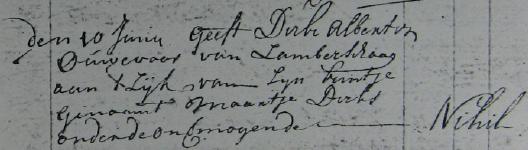 den 10 Junij geeft Dirk Albertsz
Ouwevaar van Lambertschaag
aan t Lijk van Zijn kintje
Genaamt Maartje Dirks
onder de onvermogende Nihil